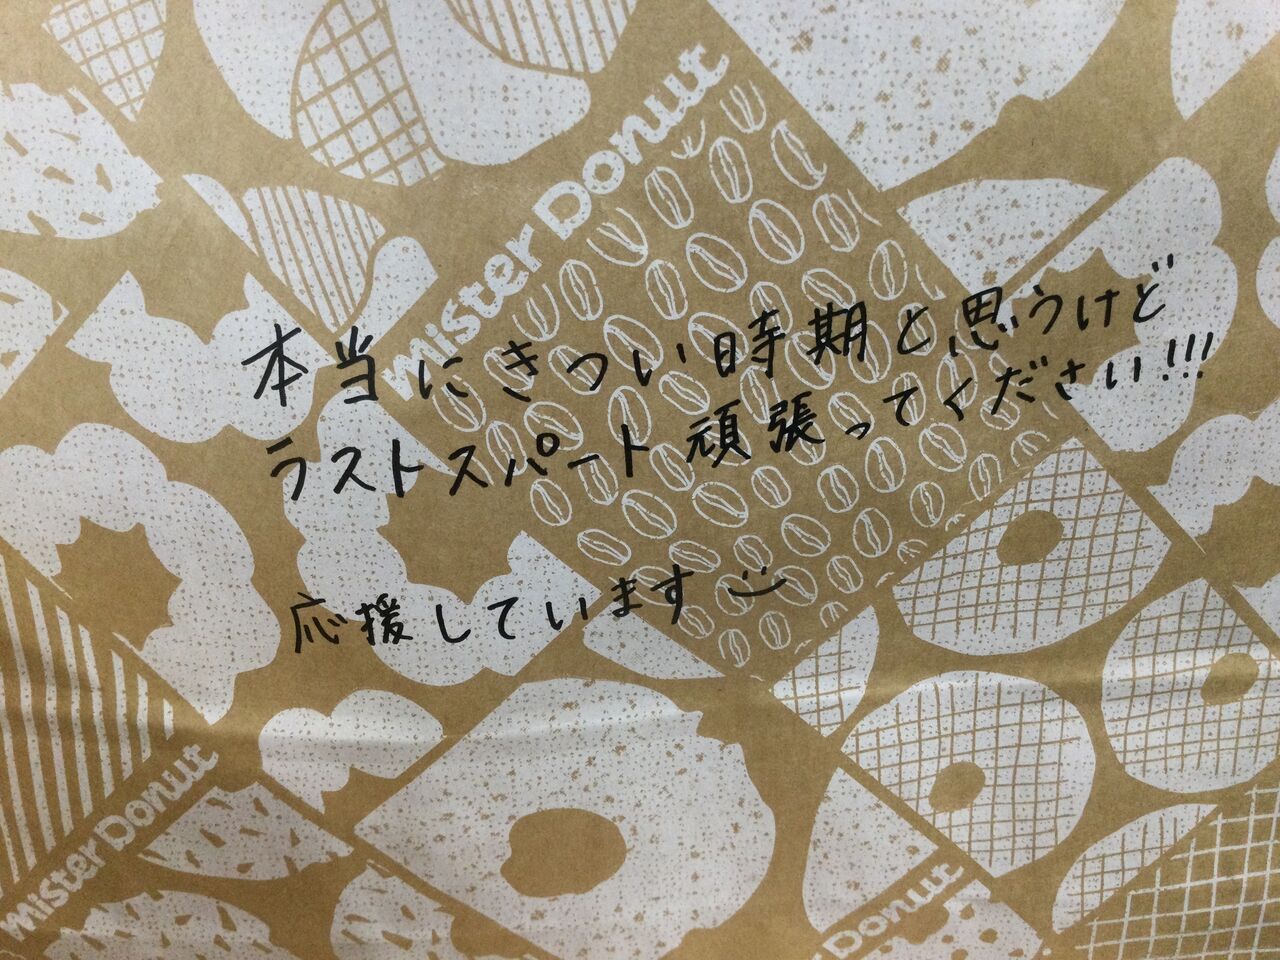 Mister Donut
本当にきつい時期と思うけど
ラストスパート頑張ってください!!!
応援しています
Mister Donut
Mister Donut